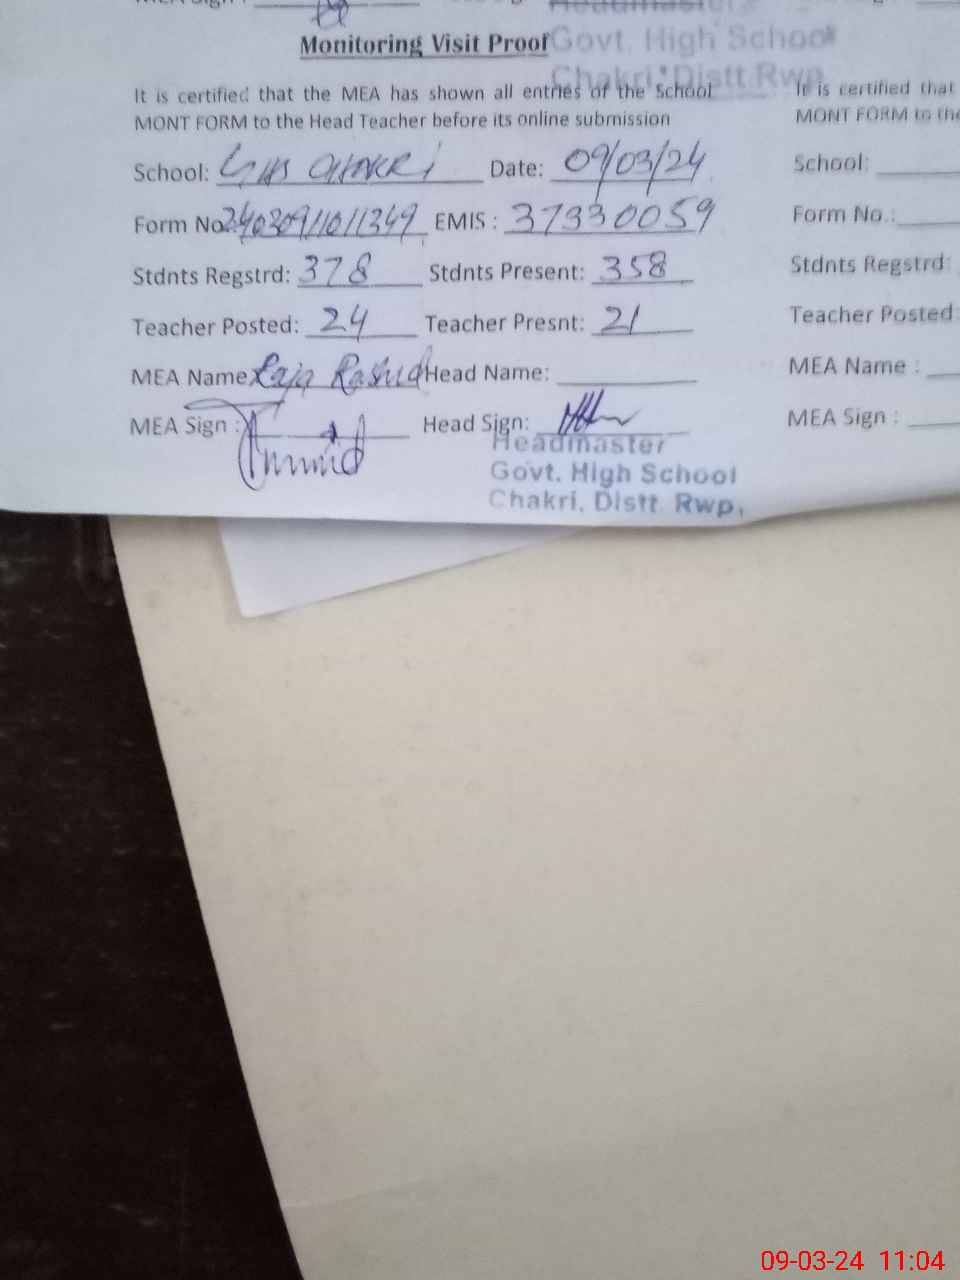 Headmaster
Monitoring Visit Proof Govt. High School
Chakri, Distt Rwp.
It is certified that the MEA has shown all entries of the School
MONT FORM to the Head Teacher before its online submission
School: GHS CHAKRI Date: 09/03/24
Form No. EMIS : 37330059
Stdnts Regstrd: 378 Stdnts Present: 358
Teacher Posted: 24 Teacher Presnt: 21
MEA Name Raja Rashid Head Name:
MEA Sign : Head Sign:
Headmaster
Govt. High School
Chakri, Distt. Rwp,
It is certified that
MONT FORM to the
School:
Form No.:
Stdnts Regstrd:
Teacher Posted:
MEA Name :
MEA Sign :
09-03-24 11:04